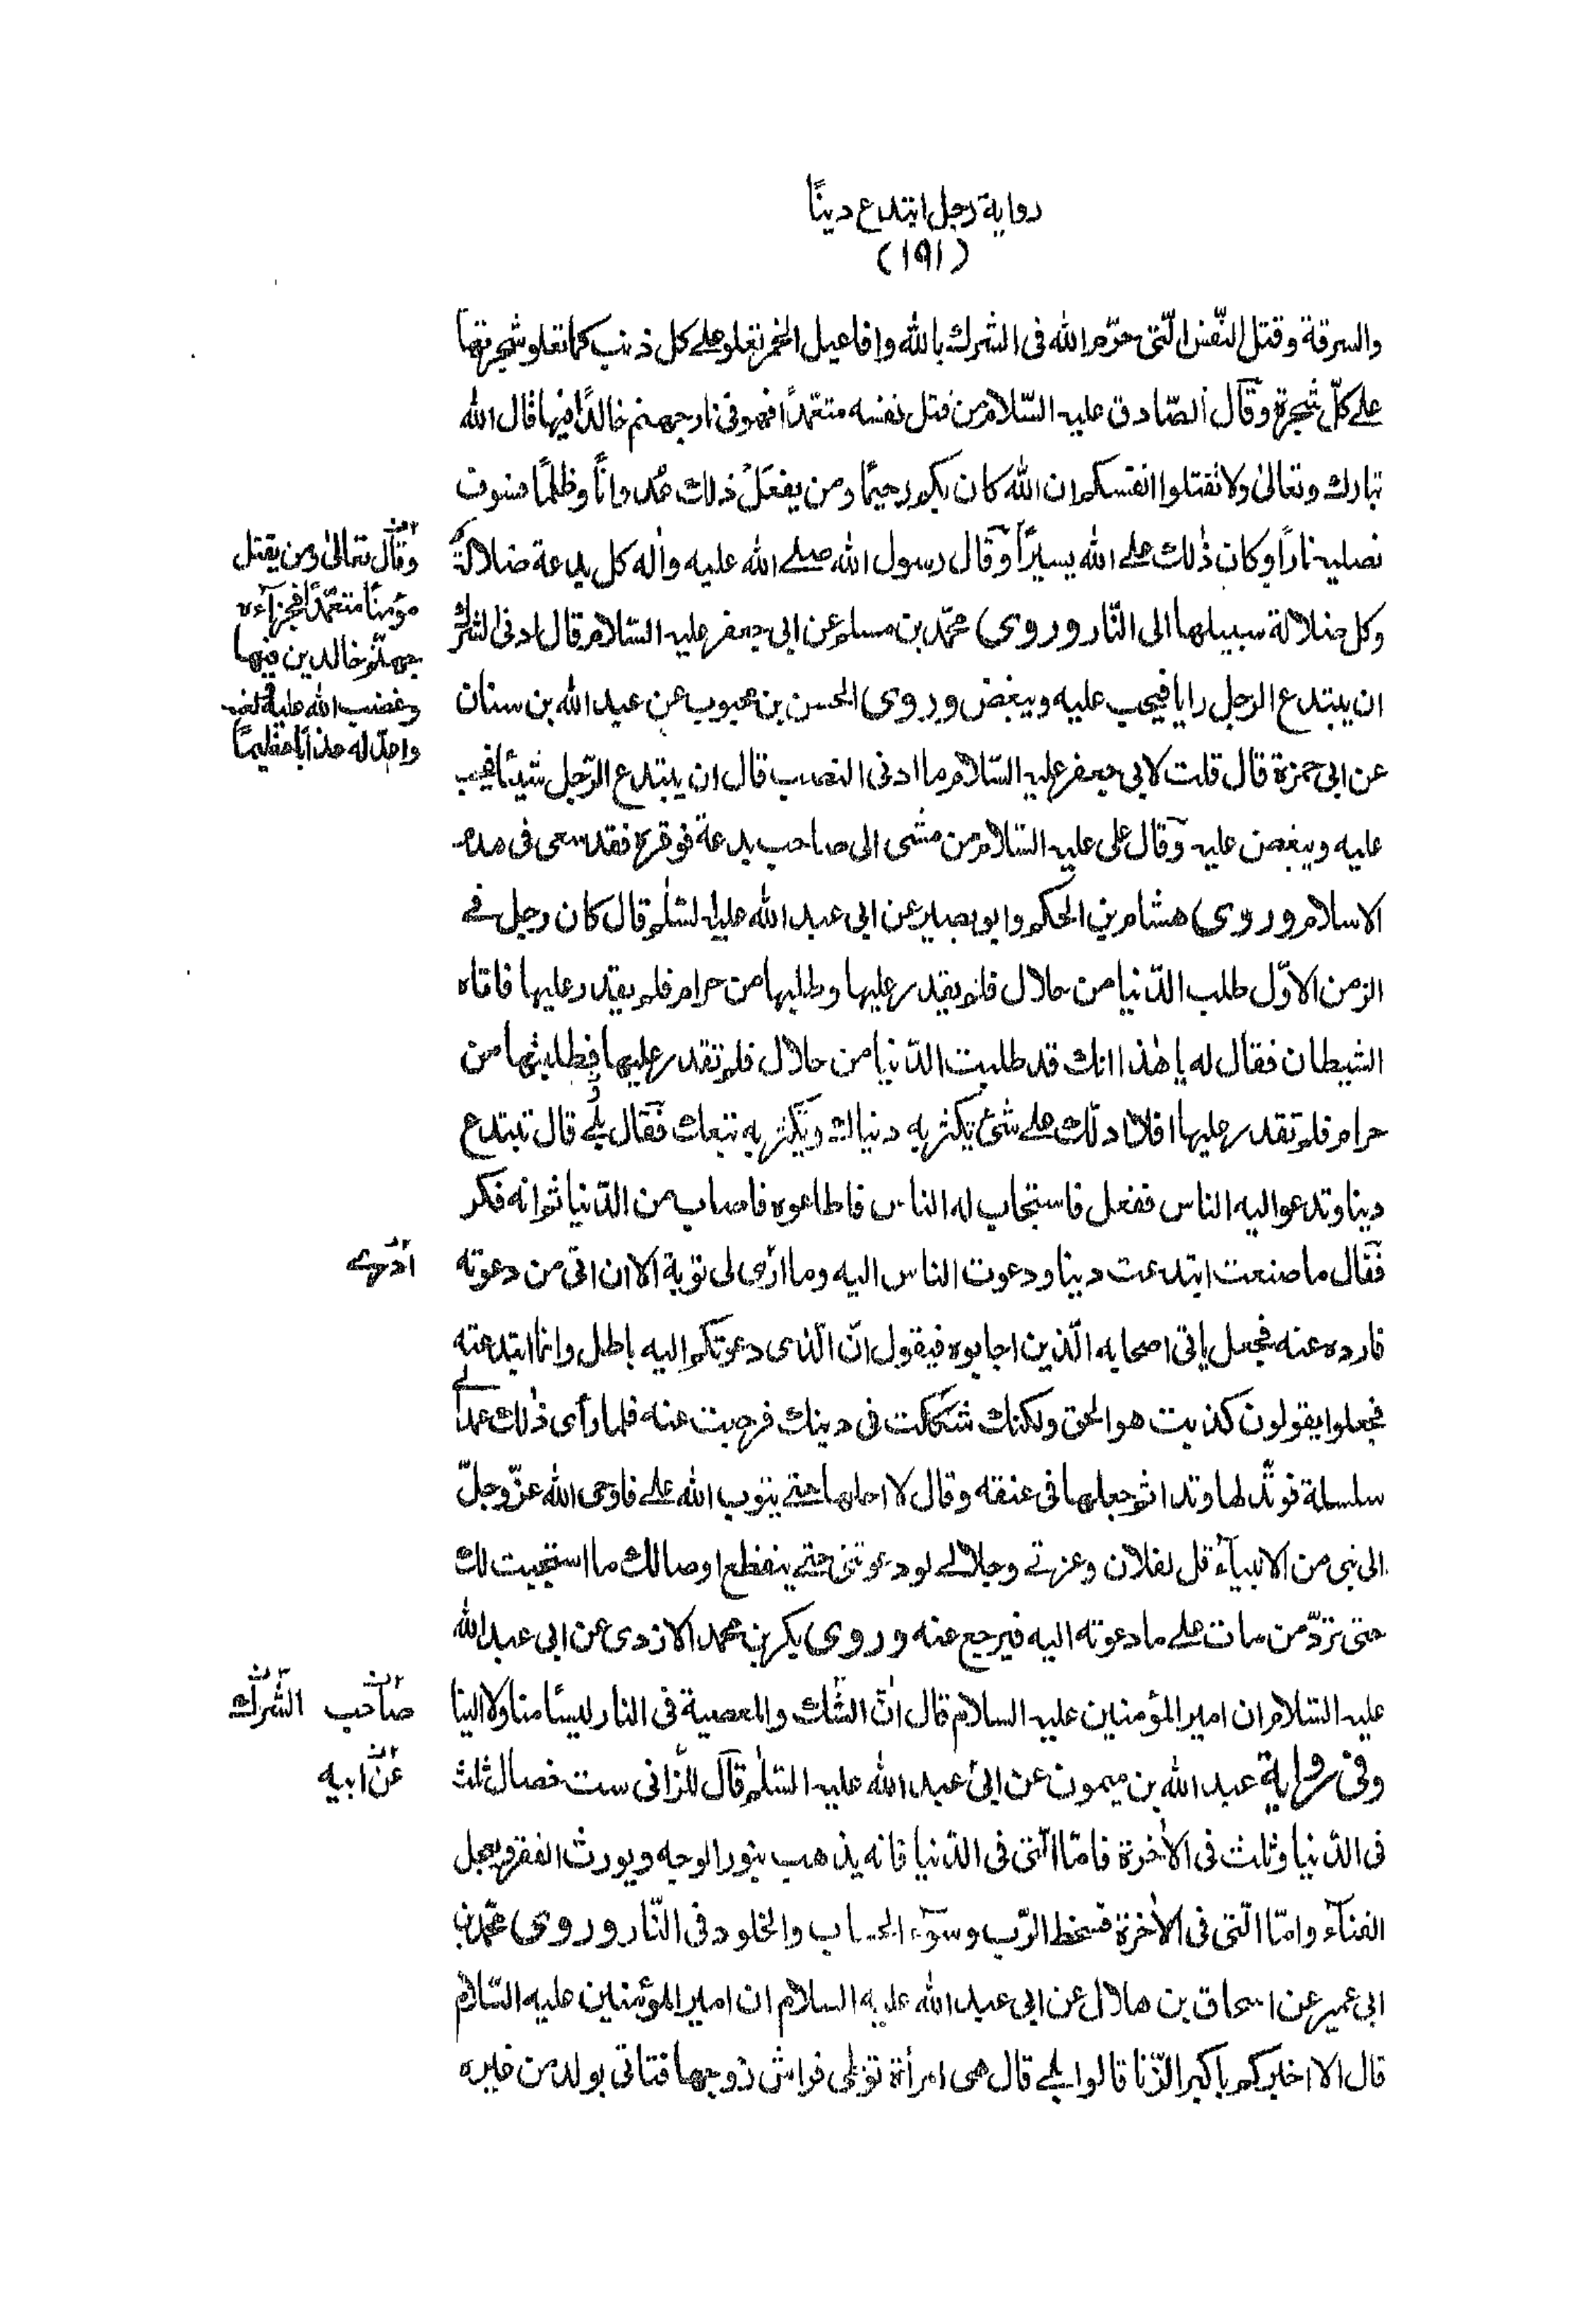 رواية رجل ابتدع دينًا
(١٩١)
والسرقة وقتل النّفس الّتى حرّم الله فى الشرك بالله وافاعيل الخمر تعلو على كل ذنب كما تعلو شجرتها
على كلّ شجرة وقال الصّادق عليه السّلام من قتل نفسه متعمّدًا فهو فى نار جهنم خالدًا فيها قال الله
تبارك وتعالى ولا تقتلوا انفسكم ان الله كان بكم رحيمًا ومن يفعل ذلك عدوانًا وظلمًا فسوف
نصليه نارًا وكان ذلك على الله يسيرًا وقال رسول الله صلى الله عليه واله كل بدعة ضلالة
وكل ضلالة سبيلها الى النّار وروى محمّد بن مسلم عن ابى جعفر عليه السّلام قال ادنى الشرك
ان يبتدع الرجل رايا فيحب عليه ويبغض وروى الحسن بن محبوب عن عبد الله بن سنان
عن ابى حمزة قال قلت لابى جعفر عليه السّلام ما ادنى النصب قال ان يبتدع الرّجل شيئا فيحب
عليه ويبغض عليه وقال على عليه السّلام من مشى الى صاحب بدعة فوقره فقد سعى فى هدم
الاسلام وروى هشام بن الحكم وابو بصير عن ابى عبد الله عليه السّلم قال كان رجل فى
الزمن الاوّل طلب الدّنيا من حلال فلم يقدر عليها وطلبها من حرام فلم يقدر عليها فاتاه
الشيطان فقال له يا هذا انك قد طلبت الدّنيا من حلال فلم تقدر عليها فطلبتها من
حرام فلم تقدر عليها افلا ادلّك على شئ تكثر به دنياك وتكثر به تبعك فقال بلى قال تبتدع
دينا وتدعو اليه الناس ففعل فاستجاب له الناس فاطاعوه فاصاب من الدّنيا ثم انه فكر
فقال ما صنعت ابتدعت دينا ودعوت الناس اليه وما ارى لى توبة الا ان اتى من دعوته
فارده عنه فجعل ياتى اصحابه الّذين اجابوه فيقول انّ الّذى دعوتكم اليه باطل وانما ابتدعته
فجعلوا يقولون كذبت هو الحق ولكنك شككت فى دينك فرجعت عنه فلما رأى ذلك عمد الى
سلسلة فوتّد لها وتدا ثم جعلها فى عنقه وقال لا احلها حتى يتوب الله على فاوحى الله عزّ وجلّ
الى نبى من الانبيآء قل لفلان وعزتى وجلالى لو دعوتنى حتى ينقطع اوصالك ما استجبت لك
حتى تردّ من مات على ما دعوته اليه فيرجع عنه وروى بكر بن محمد الازدى عن ابى عبد الله
عليه السّلام ان امير المؤمنين عليه السلام قال انّ الشّك والمعصية فى النار ليسا منا ولا الينا
وفى رواية عبد الله بن ميمون عن ابى عبد الله عليه السّلم قال للزّانى ست خصال ثلث
فى الدّنيا وثلث فى الأخرة فامّا الّتى فى الدّنيا فانه يذهب بنور الوجه ويورث الفقر ويعجل
الفنآء وامّا الّتى فى الأخرة فسخط الرّب وسوء الحساب والخلود فى النّار وروى محمّد بن
ابى عمير عن اسحاق بن هلال عن ابى عبد الله عليه السلام ان امير المؤمنين عليه السّلام
قال الا اخبركم باكبر الزّنا قالوا بلى قال هى امرأة توطى فراش زوجها فتاتى بولد من غيره
وقال تعالى ومن يقتل
مؤمنًا متعمّدًا فجزآءه
جهنّم خالدين فيها
وغضب الله عليه
واعدّ له عذابًا عظيمًا
صاحب الشرك
عن ابيه